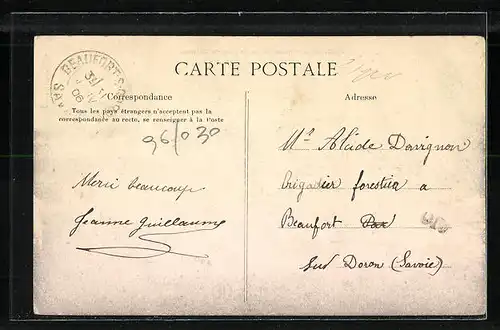 CARTE POSTALE
Correspondance
Tous les pays étrangers n'acceptent pas la
correspondance au recto, se renseigner à la Poste
96/030
Merci beaucoup
Jeanne Guillaume
Adresse
Mr Alcide Davignon
Brigadier forestier a
Beaufort
Sur Doron (Savoie)
BEAUFORT-S-DORON
06